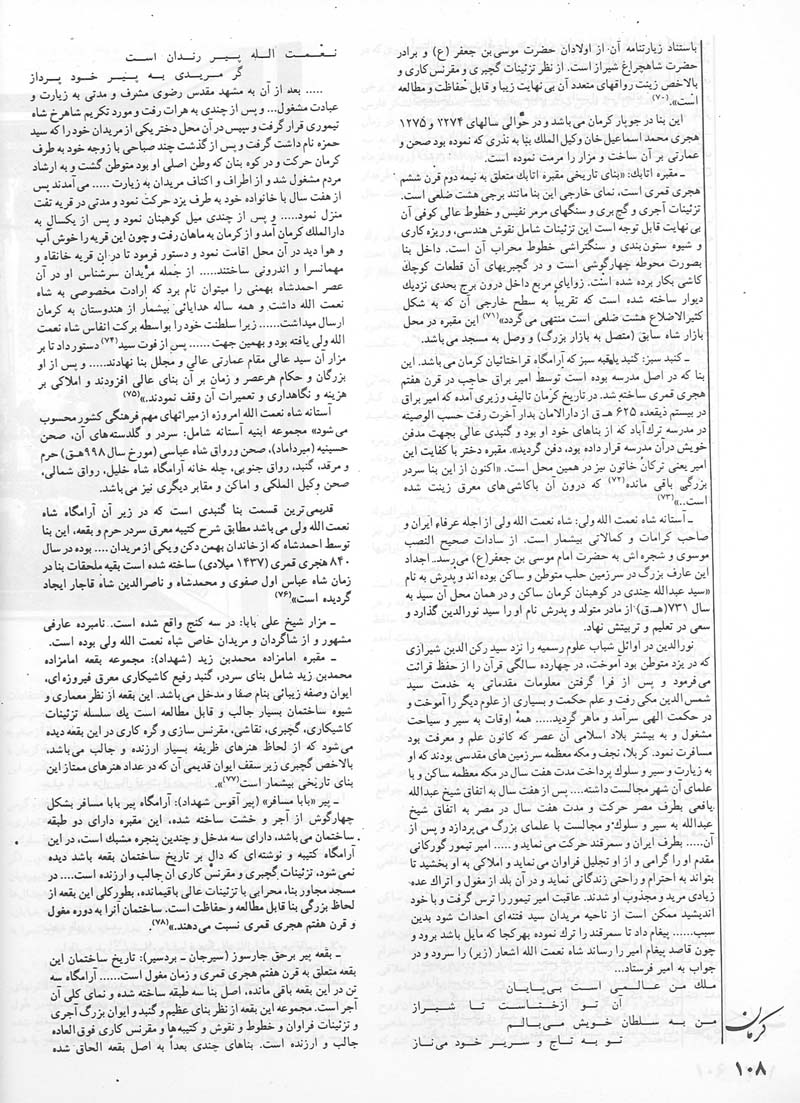 باستناد زیارتنامه آن از اولادان حضرت موسی‌بن جعفر (ع) و برادر
حضرت شاهچراغ شیراز است. از نظر تزئینات گچبری و مقرنس کاری و
بالاخص زینت رواقهای متعدد آن بی نهایت زیبا و قابل حفاظت و مطالعه
است».(۷۰)
این بنا در جوپار کرمان می باشد و در حوالی سالهای ۲۲۷۴ و ۱۲۷۵
هجری محمد اسماعیل خان وکیل الملك بنا به نذری که نموده بود صحن و
عمارتی بر آن ساخت و مزار را مرمت نموده است.
ـ مقبره اتابك: «بنای تاریخی مقبره اتابك متعلق به نیمه دوم قرن ششم
هجری قمری است، نمای خارجی این بنا مانند برجی هشت ضلعی است.
تزئینات آجری و گچ بری و سنگهای مرمر نفیس و خطوط عالی کوفی آن
بی نهایت قابل توجه است این تزئینات شامل نقوش هندسی، وریزه کاری
و شیوه ستون بندی و سنگتراشی خطوط محراب آن است. داخل بنا
بصورت محوطه چهارگوشی است و در گچبریهای آن قطعات کوچك
کاشی بکار برده شده است. زوایای مربع داخل درون برج بحدی نزدیك
دیوار ساخته شده است که تقریباً به سطح خارجی آن که به شکل
کثیرالاضلاع هشت ضلعی است منتهی می گردد»(۷۱) این مقبره در محل
بازار شاه سابق (متصل به بازار بزرگ) و وصل به مسجد می باشد.
ـ گنبد سبز: گنبد یابقبه سبز که آرامگاه قراختائیان کرمان می باشد. این
بنا که در اصل مدرسه بوده است توسط امیر براق حاجب در قرن هفتم
هجری قمری ساخته شد. در تاریخ کرمان تالیف وزیری آمده که امیر براق
در بیستم ذیقعده ۶۲۵ هـ ق از دارالامان بدار آخرت رفت حسب الوصیته
در مدرسه ترك آباد که از بناهای خود او بود و گنبدی عالی بجهت مدفن
خویش درآن مدرسه قرار داده بود، دفن گردید». مقبره دختر با کفایت این
امیر یعنی ترکان خاتون نیز در همین محل است. «اکنون از این بنا سردر
بزرگی باقی مانده(۷۲) که درون آن باکاشی‌های معرق زینت شده
است..»(۷۳)
ـ آستانه شاه نعمت الله ولی: شاه نعمت الله ولی از اجله عرفاء ایران و
صاحب کرامات و کمالاتی بیشمار است. از سادات صحیح النصب
موسوی و شجره اش به حضرت امام موسی بن جعفر(ع) می‌رسد. اجداد
این عارف بزرگ در سرزمین حلب متوطن و ساکن بوده اند و پدرش به نام
«سید عبدالله چندی در کوهبنان کرمان ساکن و در همان محل آن سید به
سال ۷۳۱(هـ ـ ق) از مادر متولد و پدرش نام او را سید نورالدین گذارد و
سعی در تعلیم و تربیتش نهاد.
نورالدین در اوائل شباب علوم رسمیه را نزد سید رکن الدین شیرازی
که در یزد متوطن بود آموخت، در چهارده سالگی قرآن را از حفظ قرائت
می‌فرمود و پس از فرا گرفتن معلومات مقدماتی به خدمت سید
شمس الدین مکی رفت و علم حکمت و بسیاری از علوم دیگر را آموخت و
در حکمت الهی سرآمد و ماهر گردید..... همه اوقات به سیر و سیاحت
مشغول و به بیشتر بلاد اسلامی آن عصر که کانون علم و معرفت بود
مسافرت نمود. کربلا، نجف و مکه معظمه سرزمین های مقدسی بودند که او
به زیارت و سیر و سلوك پرداخت مدت هفت سال در مکه معظمه ساکن و با
علمای آن شهر مجالست داشته.... پس از هفت سال به اتفاق شیخ عبدالله
یافعی بطرف مصر حرکت و مدت هفت سال در مصر به اتفاق شیخ
عبدالله به سیر و سلوك و مجالست با علمای بزرگ می‌پردازد و پس از
آن..... بطرف ایران و سمرقند حرکت می نماید و ..... امیر تیمور گورکانی
مقدم او را گرامی و از او تجلیل فراوان می نماید و املاکی به او بخشید تا
بتواند به احترام و راحتی زندگانی نماید و در آن بلد از مغول و اتراك عده
زیادی مرید و مجذوب او شدند. عاقبت امیر تیمور را ترس گرفت و با خود
اندیشید ممکن است از ناحیه مریدان سید فتنه‌ای احداث شود بدین
سبب..... پیغام داد تا سمرقند را ترك نموده بهرکجا که مایل باشد برود و
چون قاصد پیغام امیر را رساند شاه نعمت الله اشعار (زیر) را سرود و در
جواب به امیر فرستاد...
ملك من عالمی است بی‌پایان
آن تو ازختاست تا شیراز
من به سلطان خویش می‌بالم
تو به تاج و سریر خود می‌ناز
نعمت الله پیر رندان است
گر مریدی به پیر خود پرداز
..... بعد از آن به مشهد مقدس رضوی مشرف و مدتی به زیارت و
عبادت مشغول... و پس از چندی به هرات رفت و مورد تکریم شاهرخ شاه
تیموری قرار گرفت و سپس در آن محل دختر یکی از مریدان خود را که سید
حمزه نام داشت گرفت و پس از گذشت چند صباحی با زوجه خود به طرف
کرمان حرکت و در کوه بنان که وطن اصلی او بود متوطن گشت و به ارشاد
مردم مشغول شد و از اطراف و اکناف مریدان به زیارت ..... می آمدند پس
از هفت سال با خانواده خود به طرف یزد حرکت نمود و مدتی در قریه تفت
منزل نمود..... و پس از چندی میل کوهبنان نمود و پس از یکسال به
دارالملك کرمان آمد و از کرمان به ماهان رفت و چون این قریه را خوش آب
و هوا دید در آن محل اقامت نمود و دستور فرمود تا در آن قریه خانقاه و
مهمانسرا و اندرونی ساختند..... از جمله مریدان سرشناس او در آن
عصر احمدشاه بهمنی را میتوان نام برد که ارادت مخصوصی به شاه
نعمت الله داشت و همه ساله هدایائی بیشمار از هندوستان به کرمان
ارسال میداشت...... زیرا سلطنت خود را بواسطه برکت انفاس شاه نعمت
الله ولی یافته بود و بهمین جهت ...... پس از فوت سید(۷۴) دستور داد تا بر
مزار آن سید عالی مقام عمارتی عالی و مجلل بنا نهادند.... و پس از او
بزرگان و حکام هرعصر و زمان بر آن بنای عالی افزودند و املاکی بر
هزینه و نگاهداری و تعمیرات آن وقف نمودند.»(۷۵)
آستانه شاه نعمت الله امروزه از میراثهای مهم فرهنگی کشور محسوب
می‌شود» مجموعه ابنیه آستانه شامل: سردر و گلدسته‌های آن، صحن
حسینیه (میرداماد)، صحن ورواق شاه عباسی (مورخ سال ۹۹۸ هـ ق) حرم
و مرقد، گنبد، رواق جنوبی، چله خانه آرامگاه شاه خلیل، رواق شمالی،
صحن وکیل الملکی و اماکن و مقابر دیگری نیز می باشد.
قدیمی‌ترین قسمت بنا گنبدی است که در زیر آن آرامگاه شاه
نعمت الله ولی می باشد مطابق شرح کتیبه معرق سردر حرم و بقعه، این بنا
توسط احمدشاه که از خاندان بهمن دکن و یکی از مریدان .... بوده در سال
۸۴۰ هجری قمری (۱۴۳۷ میلادی) ساخته شده است بقیه ملحقات بنا در
زمان شاه عباس اول صفوی و محمدشاه و ناصرالدین شاه قاجار ایجاد
گردیده است»(۷۶)
ـ مزار شیخ علی بابا: در سه کنج واقع شده است. نامبرده عارفی
مشهور و از شاگردان و مریدان خاص شاه نعمت الله ولی بوده است.
ـ مقبره امامزاده محمدبن زید (شهداد): مجموعه بقعه امامزاده
محمدبن زید شامل بنای سردر، گنبد رفیع کاشیکاری معرق فیروزه ای،
ایوان وصفه زیبائی بنام صفا و مدخل می باشد. این بقعه از نظر معماری و
شیوه ساختمان بسیار جالب و قابل مطالعه است یك سلسله تزئینات
کاشیکاری، گچبری، نقاشی، مقرنس سازی و گره کاری در این بقعه دیده
می شود که از لحاظ هنرهای ظریفه بسیار ارزنده و جالب می باشد،
بالاخص گچبری زیر سقف ایوان قدیمی آن که در عداد هنرهای ممتاز این
بنای تاریخی بیشمار است(۷۷)».
ـ پیر «بابا مسافر» (پیر آقوس شهداد): آرامگاه پیر بابا مسافر بشکل
چهارگوش از آجر و خشت ساخته شده، این مقبره دارای دو طبقه
ساختمان می باشد، دارای سه مدخل و چندین پنجره مشبك است، در این
آرامگاه کتیبه و نوشته‌ای که دال بر تاریخ ساختمان بقعه باشد دیده
نمی شود، تزئینات گچبری و مقرنس کاری آن جالب و ارزنده است.... در
مسجد مجاور بنا، محرابی با تزئینات عالی باقیمانده، بطورکلی این بقعه از
لحاظ بزرگی بنا قابل مطالعه و حفاظت است. ساختمان آنرا به دوره مغول
و قرن هفتم هجری قمری نسبت می‌دهند.»(۷۸).
ـ بقعه پیر برحق چارسوز (سیرجان ـ بردسیر): تاریخ ساختمان این
بقعه متعلق به قرن هفتم هجری قمری و زمان مغول است...... آرامگاه سه
تن در این بقعه باقی مانده، اصل بنا سه طبقه ساخته شده و نمای کلی آن
آجر است. مجموعه این بقعه از نظر بنای عظیم و گنبد و ایوان بزرگ آجری
و تزئینات فراوان و خطوط و نقوش و کتیبه‌ها و مقرنس کاری فوق العاده
جالب و ارزنده است. بناهای چندی بعداً به اصل بقعه الحاق شده
کرمان
۱۰۸